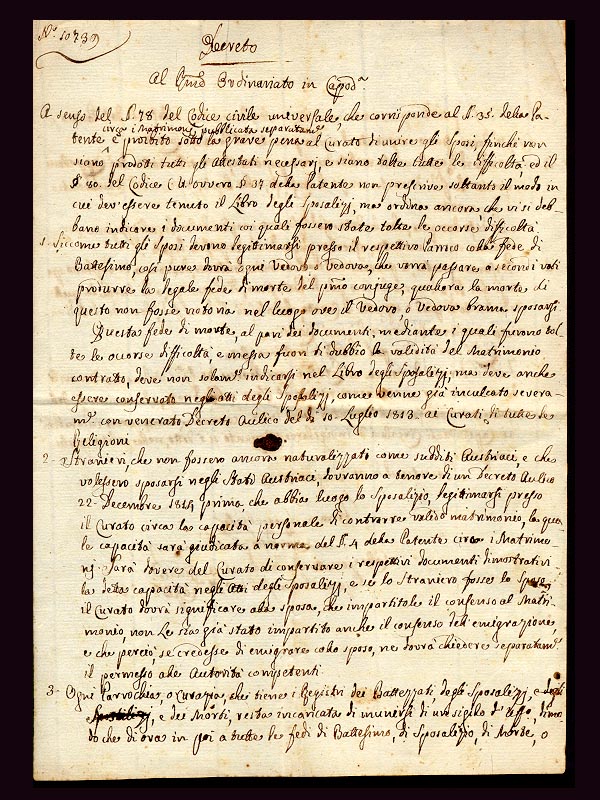 No. 10739
Decreto
Al Rmo Ordinariato in Capoda
A senso del §. 78 del Codice civile universale, che corrisponde al §. 35. della Pa-
circa i Matrimonj pubblicata separatame
tente è proibito sotto la grave pena al Curato di unire gli Sposi, finchè non
siano prodotti tutti gli Attestati necessarj, e siano tolte tutte le difficoltà ed il
§ 80. del Codice ovvero § 37 della Patente non prescrive soltanto il modo in
cui dev'essere tenuto il Libro degli Sposalizj, ma ordina ancora che vi si deb-
bano indicare i documenti coi quali fossero state tolte le occorse difficoltà
1- Siccome tutti gli Sposi devono legitimarsi presso il respettivo Parroco colla fede di
Battesimo, così pure dovrà ogni Vedovo, o Vedova, che vorrà passare a secondi voti
produrre la legale fede di morte del primo conjuge, qualora la morte di
questo non fosse notoria nel luogo ove il Vedovo, o Vedova brama sposarsi.
Questa fede di morte, al pari dei documenti, mediante i quali furono tol-
te le occorse difficoltà e messa fuori di dubbio la validità del Matrimonio
contratto, deve non solame indicarsi nel Libro degli Sposalizj, ma deve anche
essere conservato negli atti degli Sposalizj, come venne già inculcato severa-
me con venerato Decreto Aulico del dì 10- Luglio 1813. ai Curati di tutte le
Religioni
2- Stranieri, che non fossero ancora naturalizzati come sudditi Austriaci, e che
volessero sposarsi negli Stati Austriaci, dovranno a tenore di un Decreto Aulico
22- Decembre 1814 prima che abbia luogo lo Sposalizio, legitimarsi presso
il Curato circa la capacità personale di contrarre valido matrimonio, la qua-
le capacità sarà giudicata a norma del §. 4 della Patente circa i Matrimo-
nj. Sarà dovere del Curato di conservare i respettivi documenti dimostrativi
la detta capacità negli Atti degli Sposalizj, e se lo Straniero fosse lo Sposo,
il Curato dovrà significare alla sposa, che impartitole il consenso al Matri-
monio, non Le sia già stato impartito anche il consenso dell'emigrazione,
e che perciò, se credesse di emigrare collo sposo, ne dovrà chiedere separatame
il permesso alle Autorità competenti
3- Ogni Parrochia, o Curazia, che tiene i Registri dei Battezzati degli Sposalizj, e degli
Sposalizj, e dei Morti, resta incaricata di munirsi di un sigillo d'uffo, dimo-
do che di ora in poi a tutte le fedi di Battesimo, di Sposalizio, di Morte, o